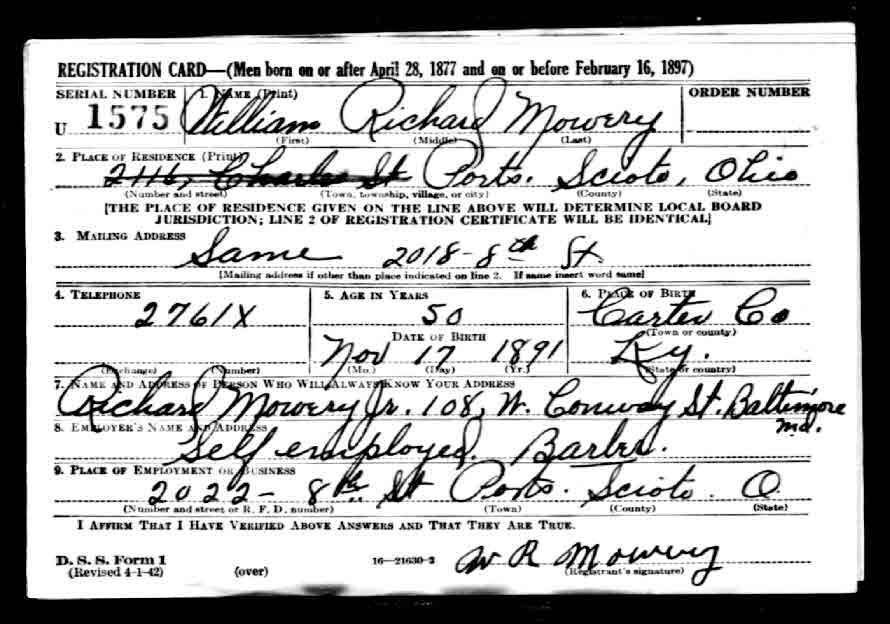 REGISTRATION CARD—(Men born on or after April 28, 1877 and on or before February 16, 1897)
SERIAL NUMBER 1. NAME (Print) ORDER NUMBER
U 1575 William Richard Mowery
(First) (Middle) (Last)
2. PLACE OF RESIDENCE (Print)
2116, Charles St Ports. Scioto, Ohio
(Number and street) (Town, township, village, or city) (County) (State)
[THE PLACE OF RESIDENCE GIVEN ON THE LINE ABOVE WILL DETERMINE LOCAL BOARD
JURISDICTION; LINE 2 OF REGISTRATION CERTIFICATE WILL BE IDENTICAL]
3. MAILING ADDRESS
Same 2018-8th St
[Mailing address if other than place indicated on line 2. If same insert word same]
4. TELEPHONE 5. AGE IN YEARS 6. PLACE OF BIRTH
2761X 50 Carter Co
DATE OF BIRTH (Town or county)
Nov 17 1891 Ky.
(Exchange) (Number) (Mo.) (Day) (Yr.) (State or country)
7. NAME AND ADDRESS OF PERSON WHO WILL ALWAYS KNOW YOUR ADDRESS
Richard Mowery Jr. 108, W. Conway St. Baltimore
Md.
8. EMPLOYER'S NAME AND ADDRESS
Self employed. Barber.
9. PLACE OF EMPLOYMENT OR BUSINESS
2022- 8th St Ports. Scioto. O
(Number and street or R. F. D. number) (Town) (County) (State)
I AFFIRM THAT I HAVE VERIFIED ABOVE ANSWERS AND THAT THEY ARE TRUE.
D. S. S. Form 1
(Revised 4-1-42) (over) 16—21630-2 W R Mowery
(Registrant's signature)